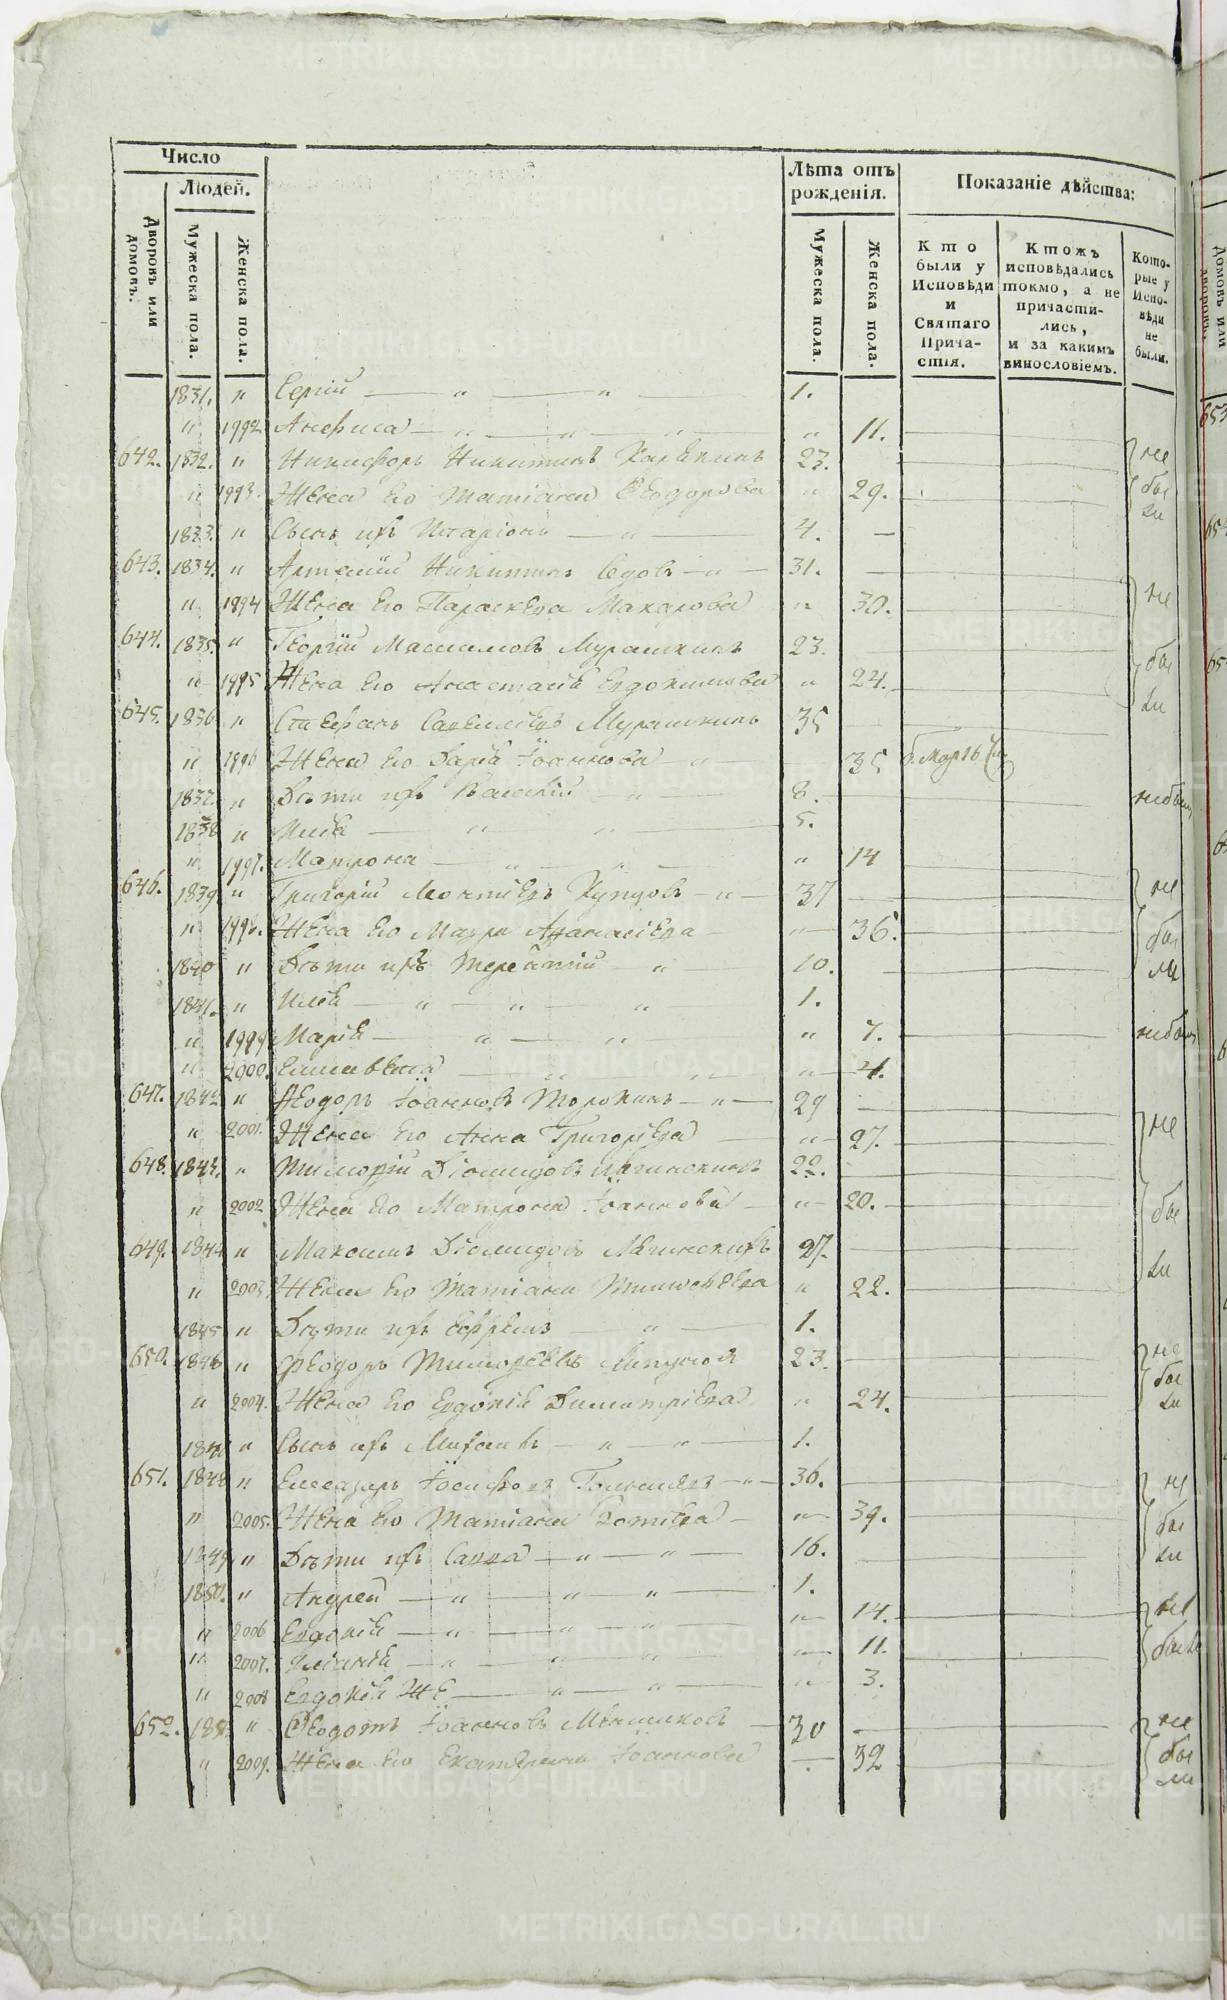 Число
Людей.
Дворовъ или домовъ.
Мужеска пола.
Женска пола.
Лѣта отъ рожденія.
Мужеска пола.
Женска пола.
Показаніе дѣйства:
Кто были у Исповѣди и Святаго Причастія.
Ктожъ исповѣдались токмо, а не причастились, и за какимъ винословіемъ.
Которые у Исповѣди не были.
1831. " Сергій 1.
" 1992 Анфиса " 11.
642. 1832. " Никифоръ Никитинъ 23. не
" 1993. Жена его Татіана Ѳеодорова " 29. бы
1833. " Сынъ ихъ Иларіонъ 4. ли
643. 1834. " Артемій Никитинъ Седовъ 31.
" 1894 Жена его Параскева Макарова " 30. не
644. 1835. " Георгій Максимовъ Мурашкинъ 23.
" 1995 Жена его Анастасія Евдокимова " 24. бы
645. 1836 " Стефанъ Савельевъ Мурашкинъ 35 ли
" 1996 Жена его Дарья Іоаннова 35
1837. " Дѣти ихъ Василій 8. небыли
1838 " Илья 5.
" 1997. Матрона " 14
646. 1839 " Григорій Леонтіевъ Купцовъ 37 не
" 1998. Жена его Мавра Афанасіева " 36. бы
1840 " Дѣти ихъ Терентій 10. ли
1841. " Илья 1.
" 1999 Марія " 7. небыли
" 2000. Елисавета " 4.
647. 1842 " Ѳеодоръ Іоанновъ Торопинъ 29
" 2001. Жена его Анна Григорьева " 27. не
648. 1843. " Тимоѳей Діомидовъ 22.
" 2002 Жена его Матрона Іоаннова " 20. бы
649. 1844 " Максимъ Діомидовъ 27.
" 2003 Жена его Татіана Тимоѳеева " 22. ли
1845 " Дѣти ихъ Ефремъ 1.
650. 1846 " Ѳеодоръ Тимоѳеевъ 23. не
" 2004. Жена его Евдокія Димитріева " 24. бы ли
" Сынъ ихъ Михаилъ 1.
651. 1848 " Елеазаръ Іосифовъ 36. не
" 2005. Жена его Татіана Зотеева " 39. бы
1849 " Дѣти ихъ Савва 16. ли
1850. " Андрей 1.
" 2006 Евдокія " 14. не
" 2007. Уліанія " 11. были
" 2008 Евдокія же " 3.
652. " Ѳеодотъ Іоанновъ Меншиковъ 30 не
" 2009. Жена его Екатерина Іоаннова 32 бы ли
METRIKI.GASO-URAL.RU